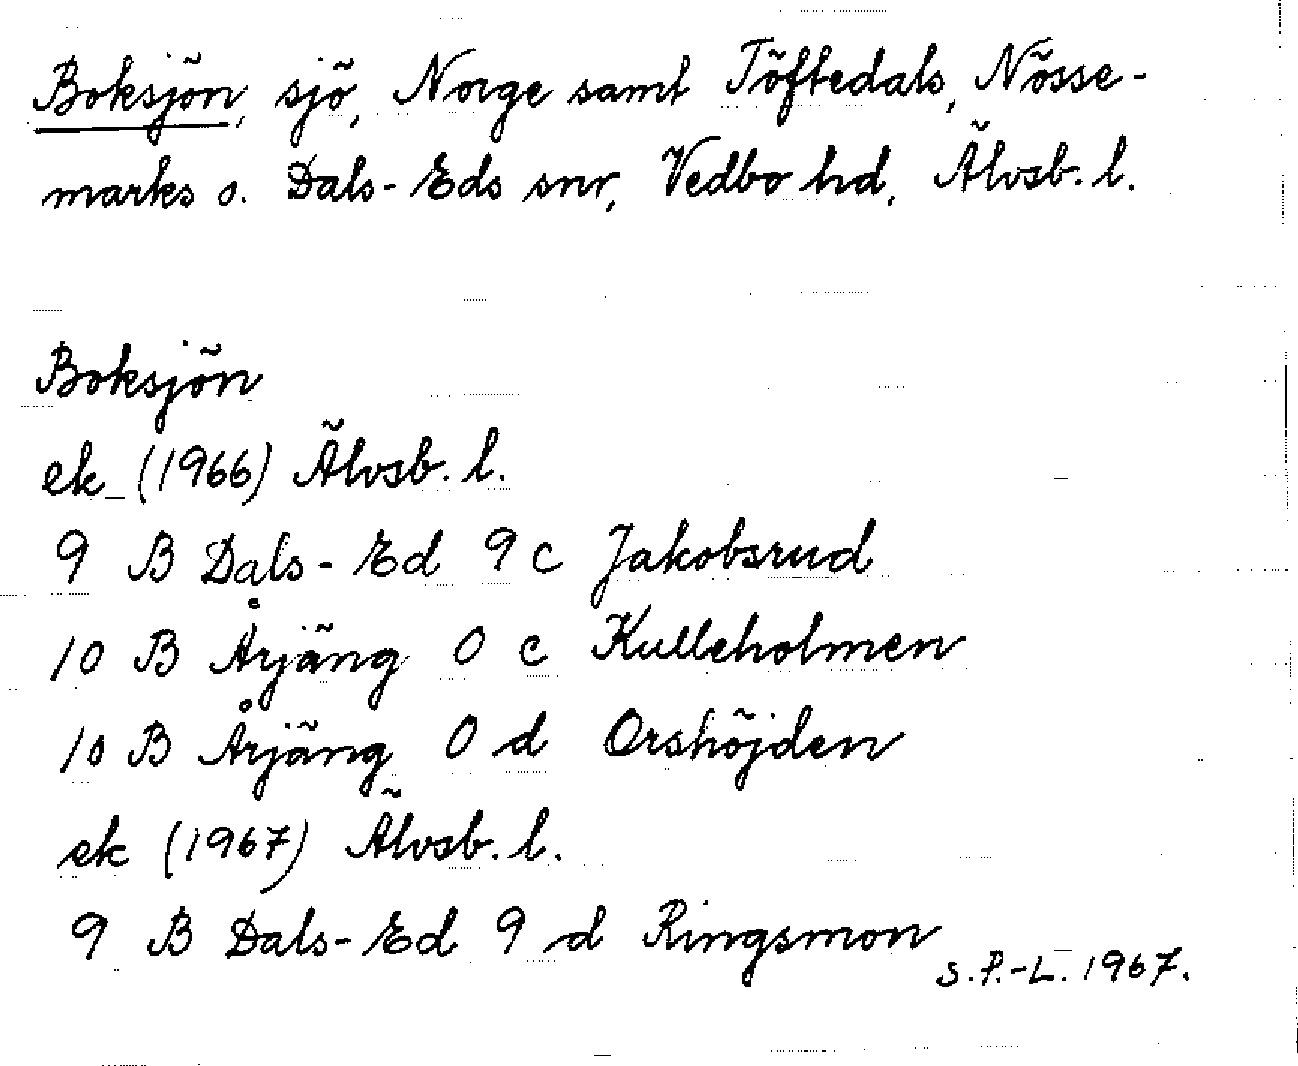 Boksjön, sjö, Norge samt Töftedals, Nösse-
marks o. Dals-Eds snr, Vedbo hd, Älvsb. l.
Boksjön
ek (1966) Älvsb. l.
9 B Dals-Ed 9 c Jakobsrud
10 B Årjäng 0 c Kulleholmen
10 B Årjäng 0 d Orshöjden
ek (1967) Älvsb. l.
9 B Dals-Ed 9 d Ringsmon
S.P.-L. 1967.